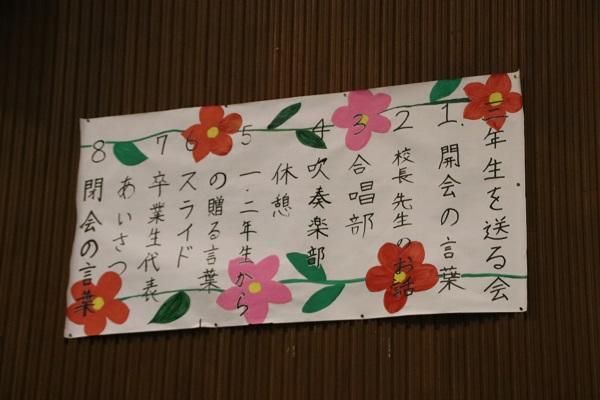 三年生を送る会
1. 開会の言葉
2 校長先生のお話
3 合唱部
4 吹奏楽部
休憩
5 一・二年生から
の贈る言葉
6 スライド
7 卒業生代表
あいさつ
8 閉会の言葉